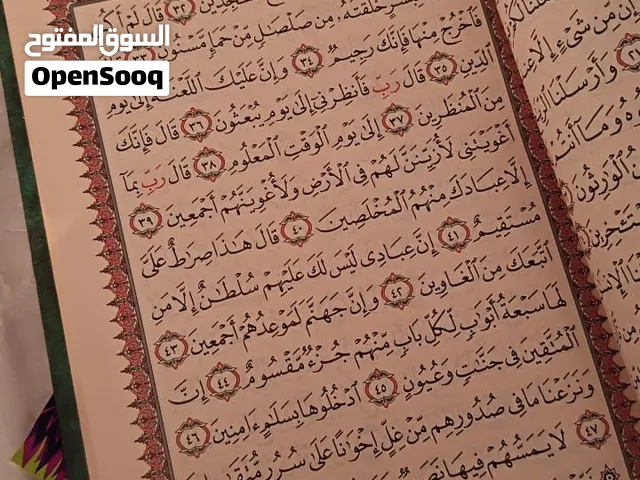 السوق المفتوح
OpenSooq
قَالَ لَمْ ٣٢
فَٱخْرُجْ مِنْهَا فَإِنَّكَ رَجِيمٌ ٣٤ وَإِنَّ عَلَيْكَ ٱللَّعْنَةَ إِلَىٰ يَوْمِ
ٱلدِّينِ ٣٥ قَالَ رَبِّ فَأَنظِرْنِىٓ إِلَىٰ يَوْمِ يُبْعَثُونَ ٣٦ قَالَ فَإِنَّكَ
مِنَ ٱلْمُنظَرِينَ ٣٧ إِلَىٰ يَوْمِ ٱلْوَقْتِ ٱلْمَعْلُومِ ٣٨ قَالَ رَبِّ بِمَآ
أَغْوَيْتَنِى لَأُزَيِّنَنَّ لَهُمْ فِى ٱلْأَرْضِ وَلَأُغْوِيَنَّهُمْ أَجْمَعِينَ ٣٩
إِلَّا عِبَادَكَ مِنْهُمُ ٱلْمُخْلَصِينَ ٤٠ قَالَ هَٰذَا صِرَٰطٌ عَلَىَّ
مُسْتَقِيمٌ ٤١ إِنَّ عِبَادِى لَيْسَ لَكَ عَلَيْهِمْ سُلْطَٰنٌ إِلَّا مَنِ
ٱتَّبَعَكَ مِنَ ٱلْغَاوِينَ ٤٢ وَإِنَّ جَهَنَّمَ لَمَوْعِدُهُمْ أَجْمَعِينَ ٤٣
لَهَا سَبْعَةُ أَبْوَٰبٍ لِّكُلِّ بَابٍ مِّنْهُمْ جُزْءٌ مَّقْسُومٌ ٤٤ إِنَّ
ٱلْمُتَّقِينَ فِى جَنَّٰتٍ وَعُيُونٍ ٤٥ ٱدْخُلُوهَا بِسَلَٰمٍ ءَامِنِينَ ٤٦
وَنَزَعْنَا مَا فِى صُدُورِهِم مِّنْ غِلٍّ إِخْوَٰنًا عَلَىٰ سُرُرٍ ٤٧
لَا يَمَسُّهُمْ فِيهَا
مِّن شَىْءٍ إِلَّا
وَأَرْسَلْنَا
وَمَآ
ٱلْوَٰرِثُونَ